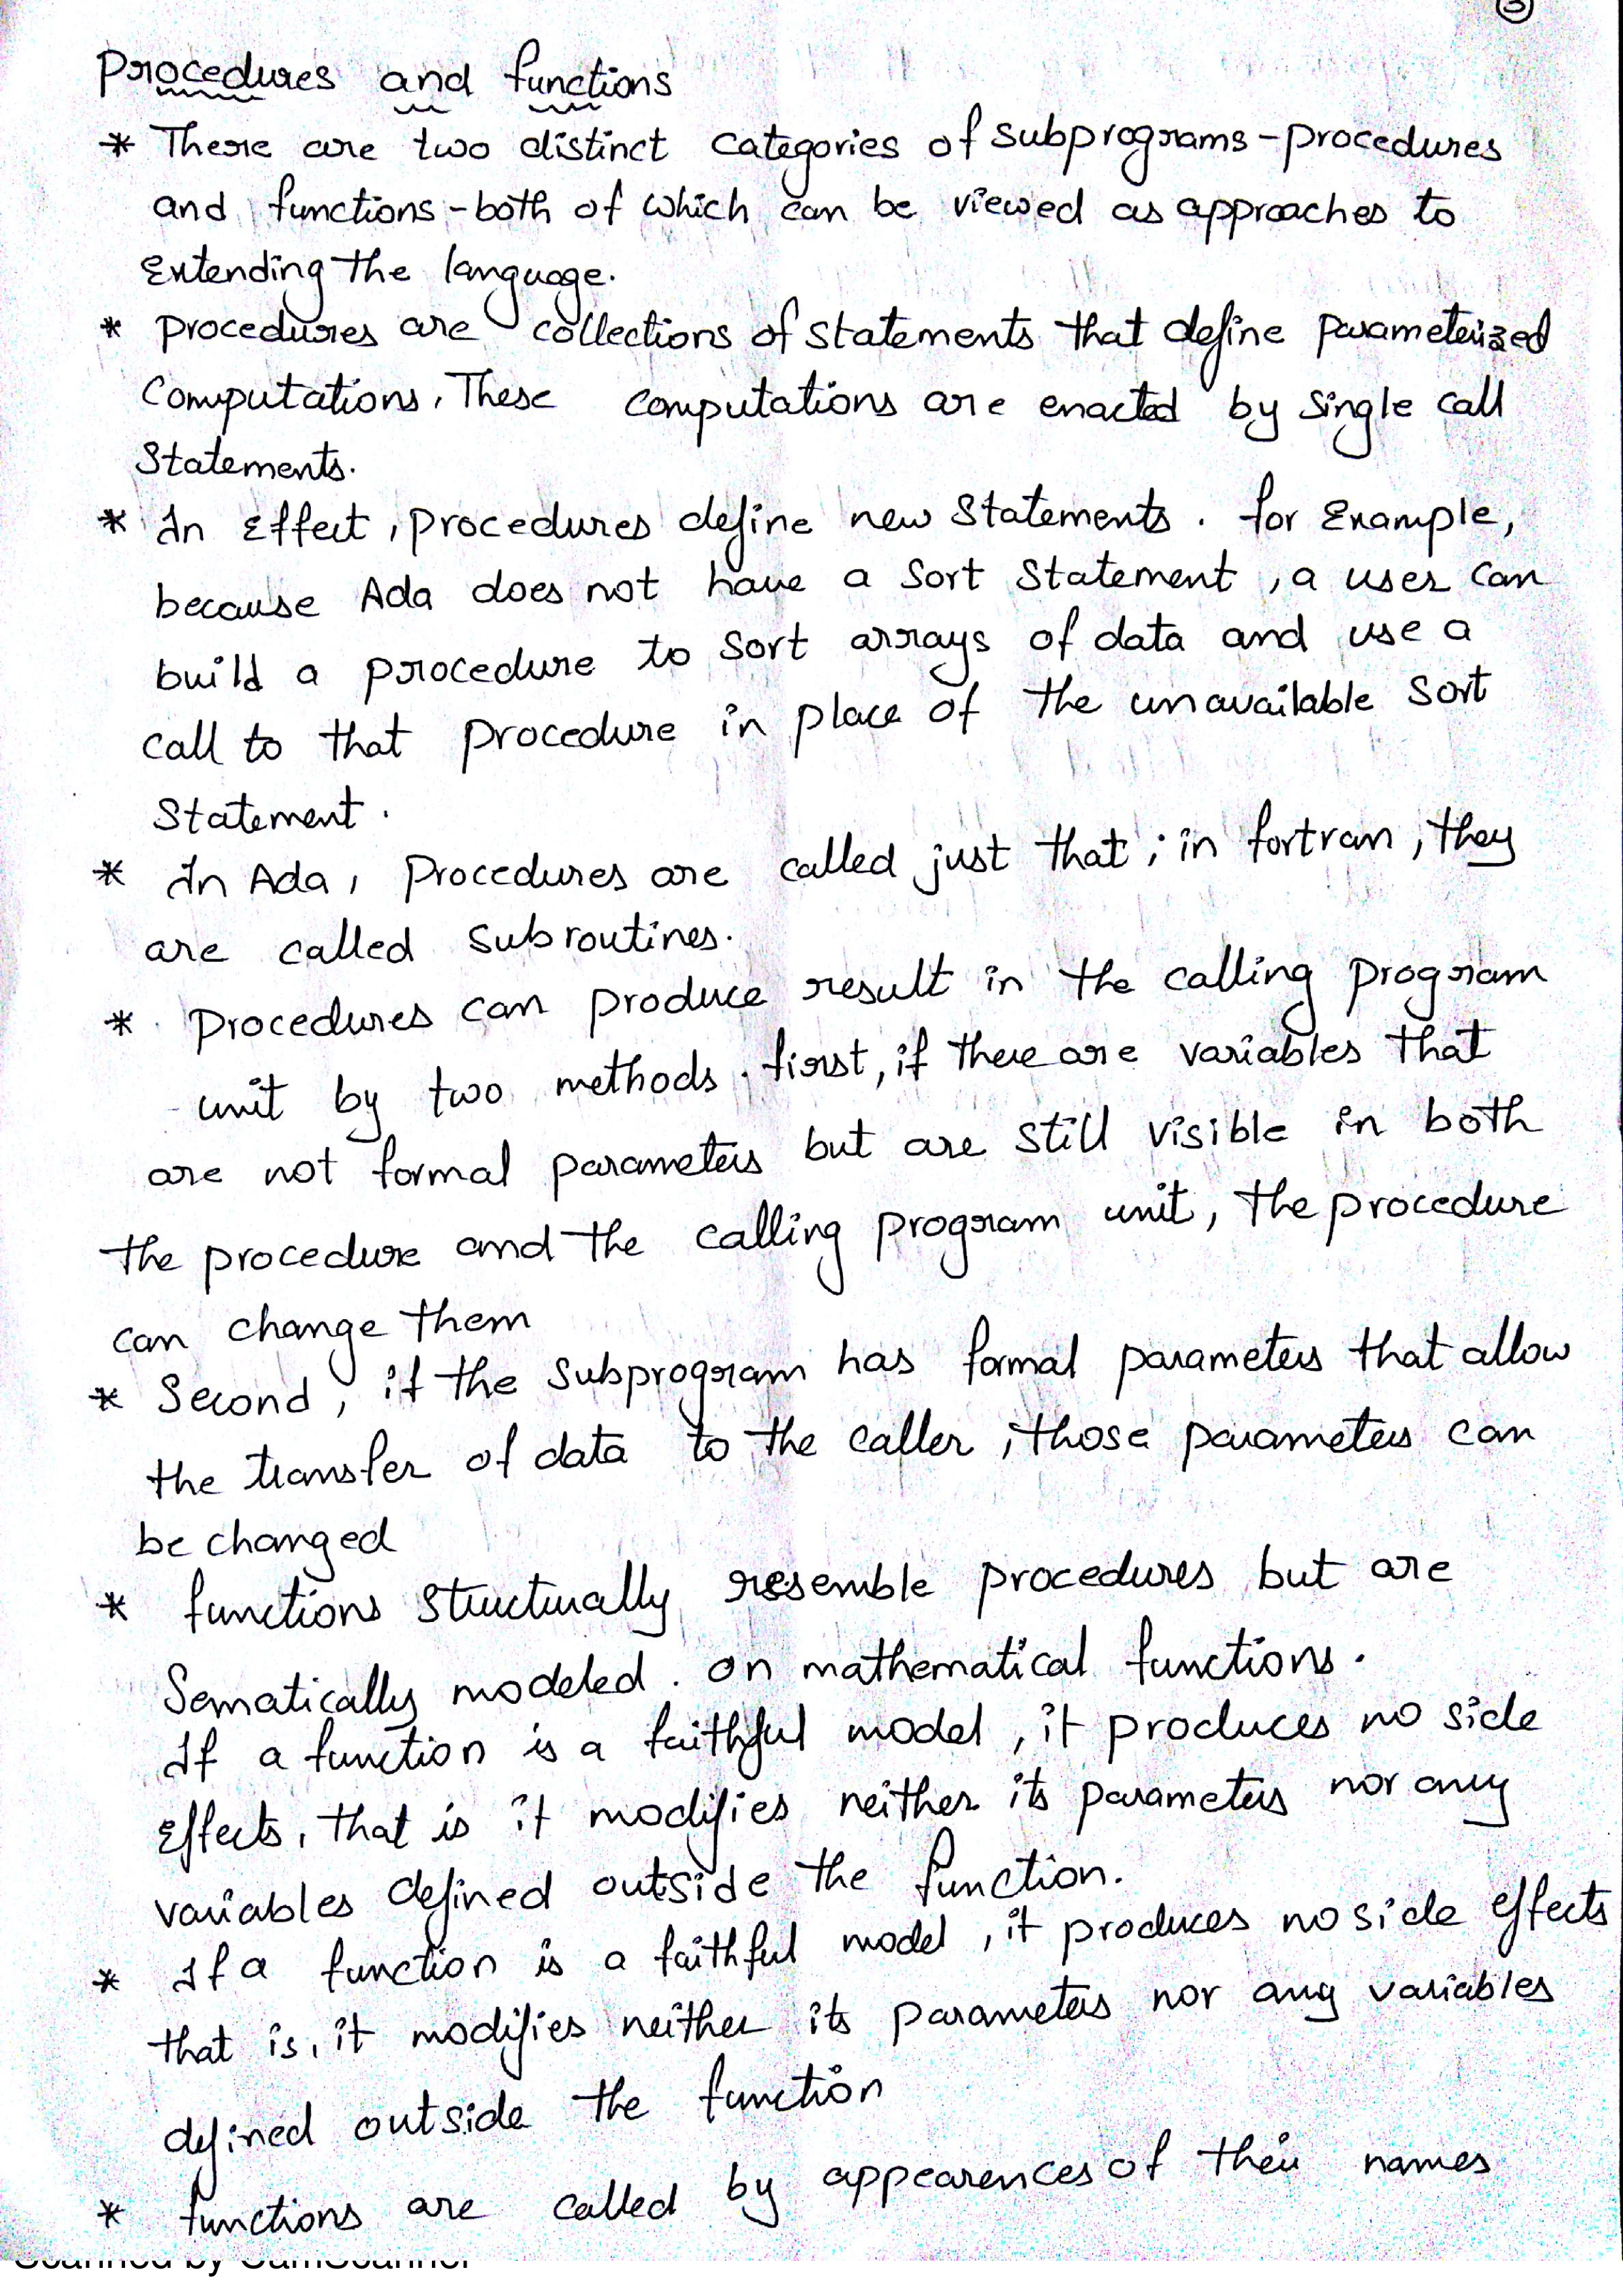 Procedures and functions
* There are two distinct categories of subprograms - procedures
and functions - both of which can be viewed as approaches to
Extending the language.
* procedures are collections of statements that define parameterized
Computations, These computations are enacted by single call
Statements.
* In Effect, procedures define new Statements. for Example,
because Ada does not have a Sort Statement, a user can
build a procedure to sort arrays of data and use a
call to that procedure in place of the unavailable sort
Statement.
* In Ada, procedures are called just that; in fortran, they
are called subroutines.
* procedures can produce result in the calling program
unit by two methods. first, if there are variables that
are not formal parameters but are still visible in both
the procedure and the calling program unit, the procedure
can change them
* Second, if the subprogram has formal parameters that allow
the transfer of data to the caller, those parameters can
be changed
* functions structurally resemble procedures but are
Sematically modeled. on mathematical functions.
If a function is a faithful model, it produces no side
Effects, that is it modifies neither its parameters nor any
variables defined outside the function.
* If a function is a faithful model, it produces no side effects
that is, it modifies neither its parameters nor any variables
defined outside the function
* functions are called by appearences of their names
Scanned by CamScanner